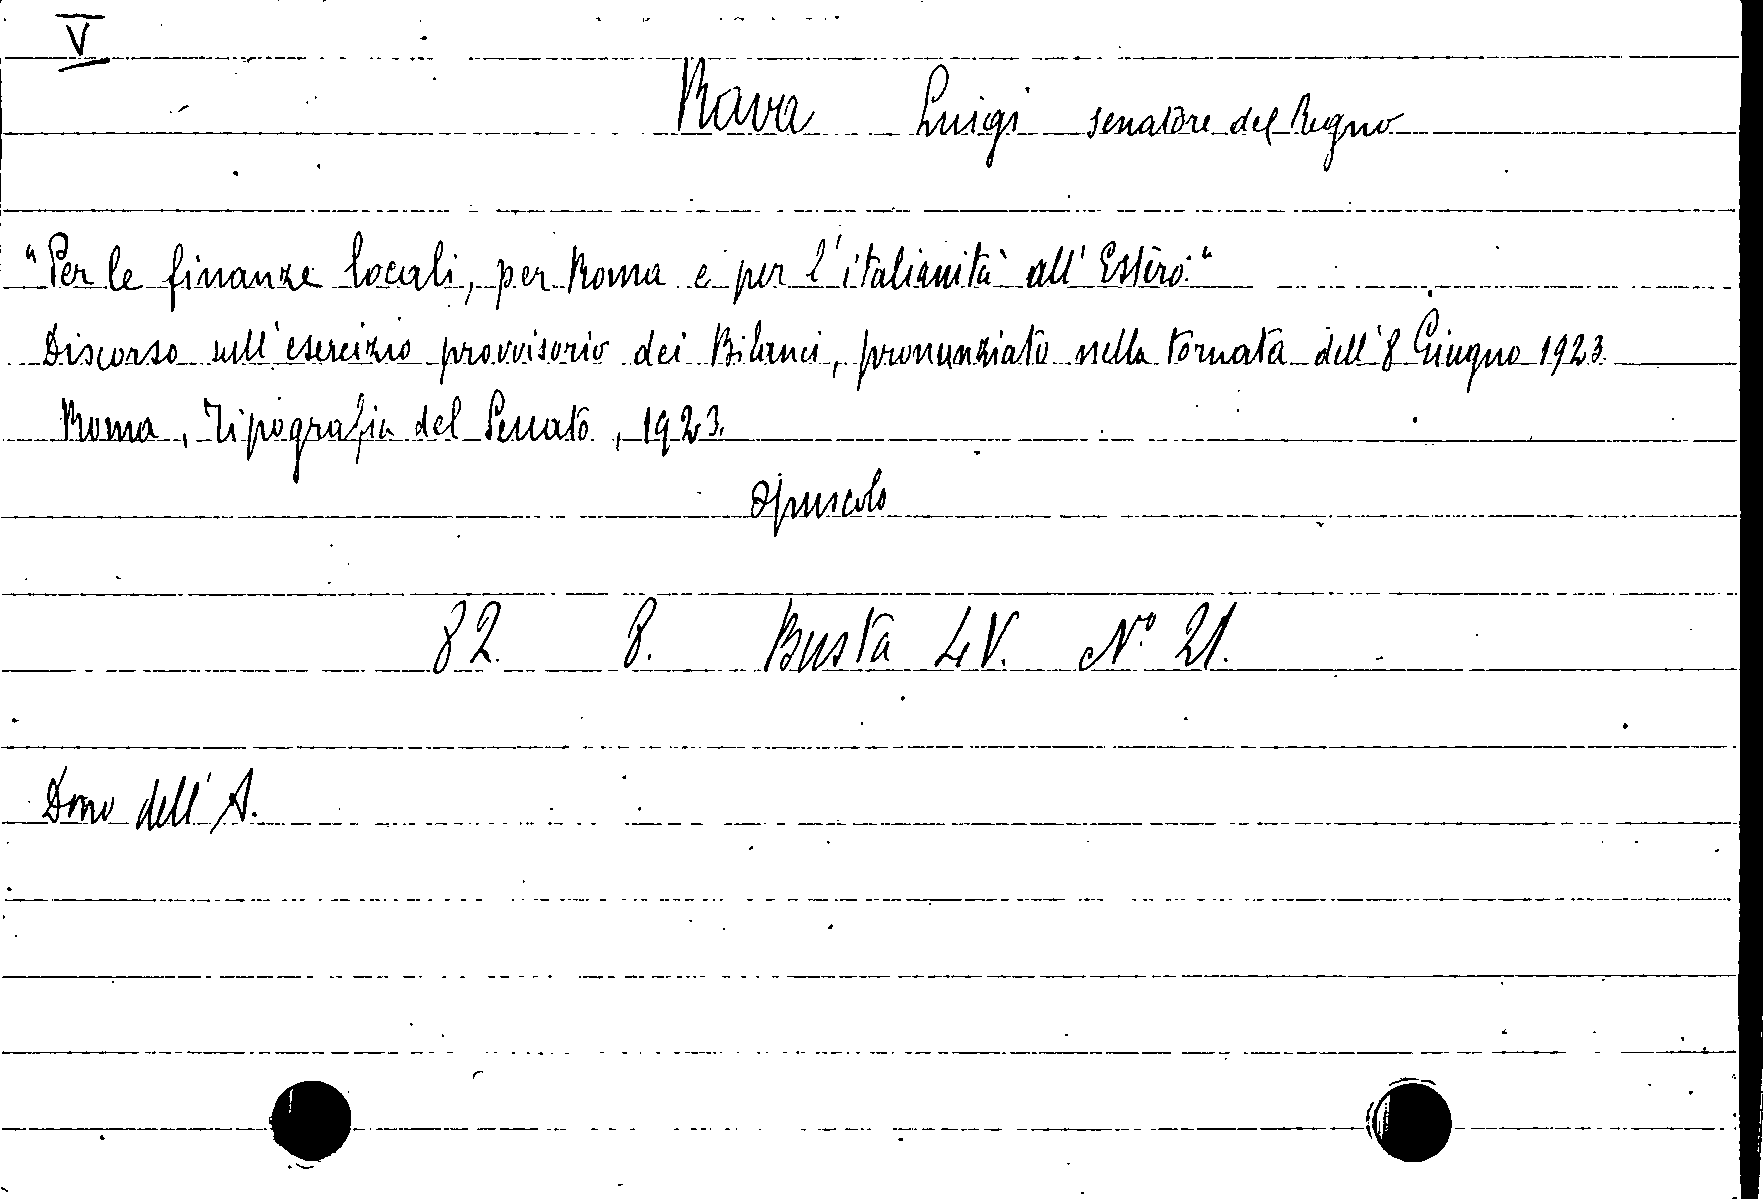 V
Rava Luigi senatore del Regno
"Per le finanze locali, per Roma e per l'italianità all'Estero."
Discorso sull'esercizio provvisorio dei Bilanci, pronunziato nella tornata dell'8 Giugno 1923.
Roma, Tipografia del Senato, 1923.
Opuscolo
82. 8. Busta LV. Nº 21.
Dono dell'A.